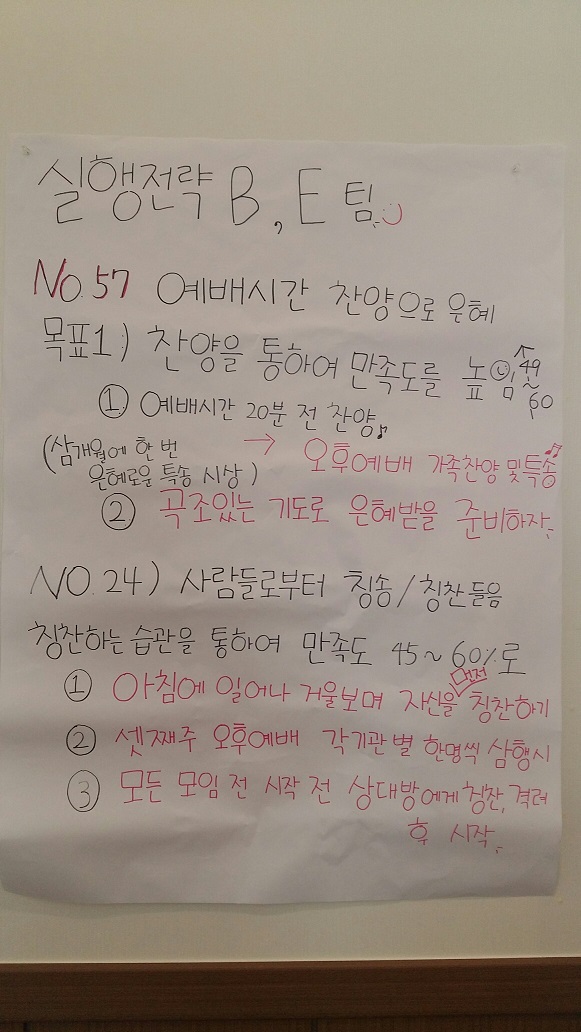 실행전략 B, E 팀
NO.57 예배시간 찬양으로 은혜
목표1) 찬양을 통하여 만족도를 높임 49~60
① 예배시간 20분 전 찬양♪
(삼개월에 한 번 → 오후예배 가족찬양 및 특송
은혜로운 특송 시상)
② 곡조있는 기도로 은혜받을 준비하자
NO.24) 사람들로부터 칭송/칭찬들음
칭찬하는 습관을 통하여 만족도 45~60%로
① 아침에 일어나 거울보며 자신을 먼저 칭찬하기
② 셋째주 오후예배 각기관별 한명씩 삼행시
③ 모든 모임 전 시작 전 상대방에게 칭찬, 격려
후 시작